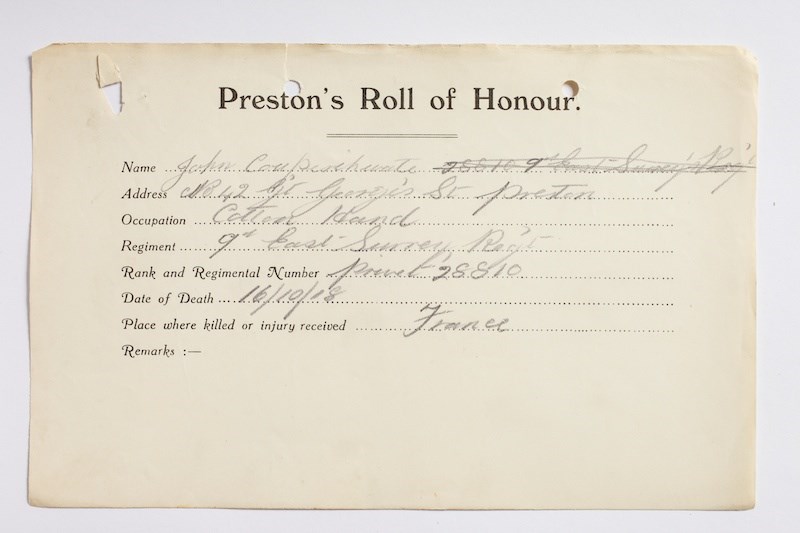 Preston's Roll of Honour.
Name John Coupirthwate 28810 9th East Surrey Regt
Address No 42 Gt George's St Preston
Occupation Cotton Hand
Regiment 9th East Surrey Regt
Rank and Regimental Number Privet 28810
Date of Death 16/10/18
Place where killed or injury received France
Remarks :—